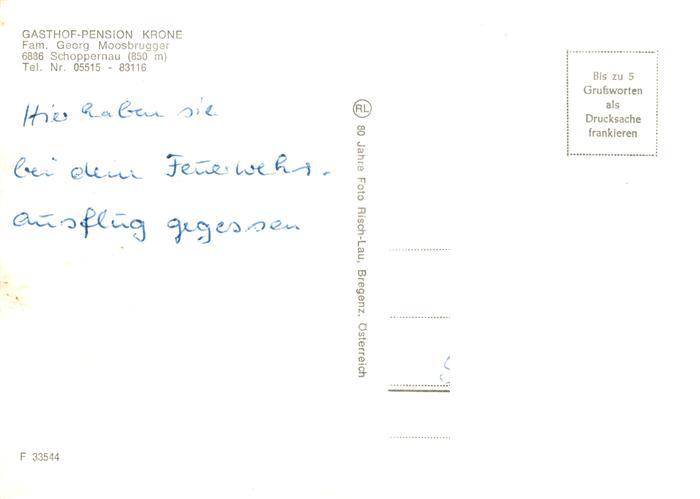 GASTHOF-PENSION KRONE
Fam. Georg Moosbrugger
6886 Schoppernau (850 m)
Tel. Nr. 05515 - 83116
Hier haben sie
bei dem Feuerwehr-
ausflug gegessen
RL 80 Jahre Foto Risch-Lau, Bregenz, Österreich
Bis zu 5
Grußworten
als
Drucksache
frankieren
F 33544